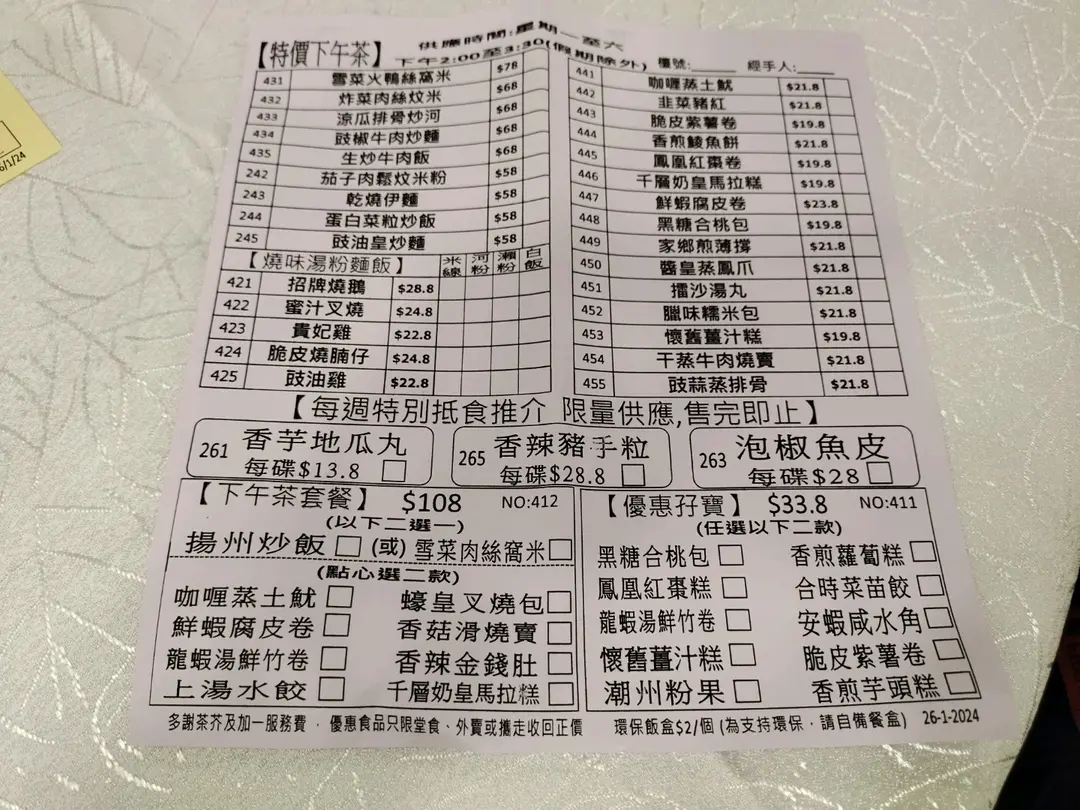 【特價下午茶】
供應時間:星期一至六
下午2:00至3:30(假期除外) 檯號:____ 經手人:____
431 雪菜火鴨絲窩米 $78
432 炸菜肉絲炆米 $68
433 涼瓜排骨炒河 $68
434 豉椒牛肉炒麵 $68
435 生炒牛肉飯 $68
242 茄子肉鬆炆米粉 $58
243 乾燒伊麵 $58
244 蛋白菜粒炒飯 $58
245 豉油皇炒麵 $58
【燒味湯粉麵飯】 米線 河粉 瀨粉 白飯
421 招牌燒鵝 $28.8
422 蜜汁叉燒 $24.8
423 貴妃雞 $22.8
424 脆皮燒腩仔 $24.8
425 豉油雞 $22.8
441 咖喱蒸土魷 $21.8
442 韭菜豬紅 $21.8
443 脆皮紫薯卷 $19.8
444 香煎鯪魚餅 $21.8
445 鳳凰紅棗卷 $19.8
446 千層奶皇馬拉糕 $19.8
447 鮮蝦腐皮卷 $23.8
448 黑糖合桃包 $19.8
449 家鄉煎薄撐 $21.8
450 醬皇蒸鳳爪 $21.8
451 擂沙湯丸 $21.8
452 臘味糯米包 $21.8
453 懷舊薑汁糕 $19.8
454 干蒸牛肉燒賣 $21.8
455 豉蒜蒸排骨 $21.8
【每週特別抵食推介 限量供應,售完即止】
261 香芋地瓜丸
每碟$13.8
265 香辣豬手粒
每碟$28.8
263 泡椒魚皮
每碟$28
【下午茶套餐】 $108 NO:412
(以下二選一)
揚州炒飯 (或) 雪菜肉絲窩米
(點心選二款)
咖喱蒸土魷 蠔皇叉燒包
鮮蝦腐皮卷 香菇滑燒賣
龍蝦湯鮮竹卷 香辣金錢肚
上湯水餃 千層奶皇馬拉糕
【優惠孖寶】 $33.8 NO:411
(任選以下二款)
黑糖合桃包 香煎蘿蔔糕
鳳凰紅棗糕 合時菜苗餃
龍蝦湯鮮竹卷 安蝦咸水角
懷舊薑汁糕 脆皮紫薯卷
潮州粉果 香煎芋頭糕
多謝茶芥及加一服務費．優惠食品只限堂食、外賣或攜走收回正價 環保飯盒$2/個 (為支持環保．請自備餐盒) 26-1-2024